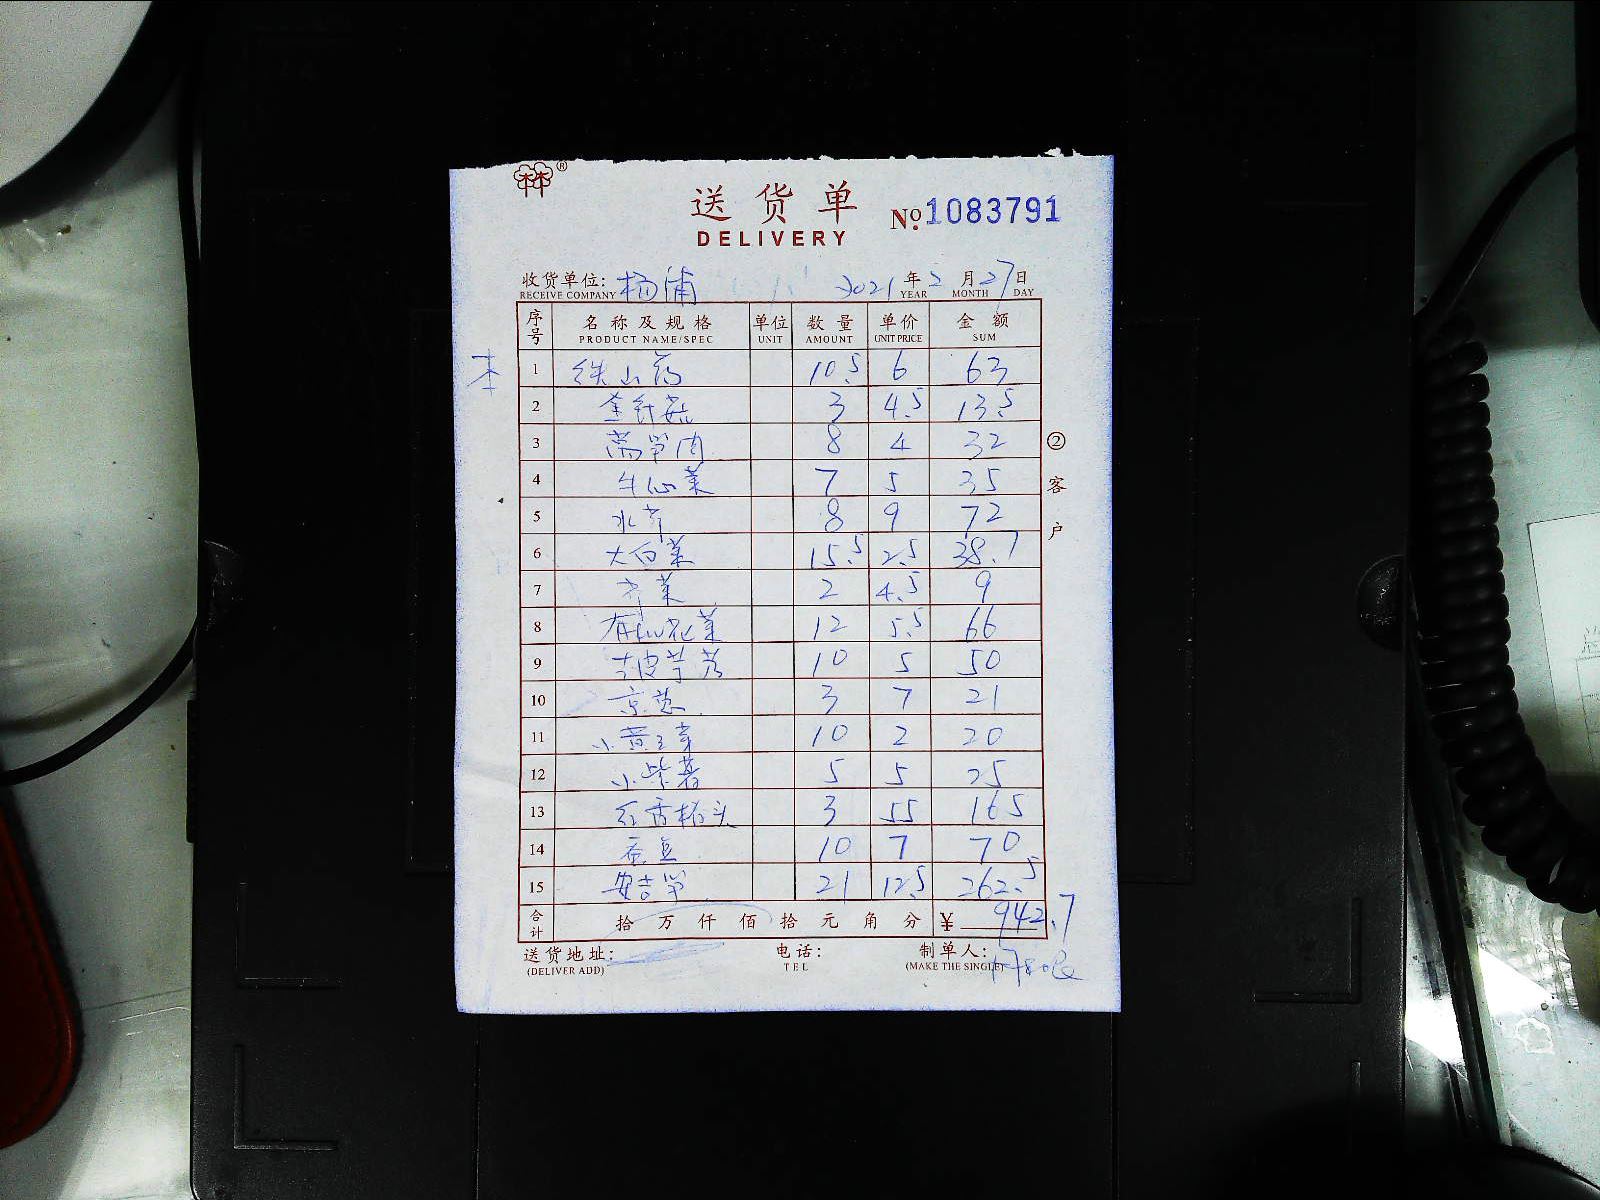 送货单 No.1083791
DELIVERY
收货单位: 杨浦 2021年2月27日
RECEIVE COMPANY YEAR MONTH DAY
序号 名称及规格 单位 数量 单价 金额
PRODUCT NAME/SPEC UNIT AMOUNT UNIT PRICE SUM
1 铁山药 10.5 6 63
2 金针菇 3 4.5 13.5
3 莴笋肉 8 4 32
4 牛心菜 7 5 35
5 水芹 8 9 72
6 大白菜 15.5 2.5 38.7
7 芹菜 2 4.5 9
8 有机花菜 12 5.5 66
9 10 5 50
10 京葱 3 7 21
11 小黄豆芽 10 2 20
12 小紫薯 5 5 25
13 红香椿头 3 55 165
14 蚕豆 10 7 70
15 安吉笋 21 12.5 262.5
合计 拾万仟佰拾元角分 ¥ 942.7
送货地址: 电话: 制单人:
(DELIVER ADD) TEL (MAKE THE SINGLE)
②客户